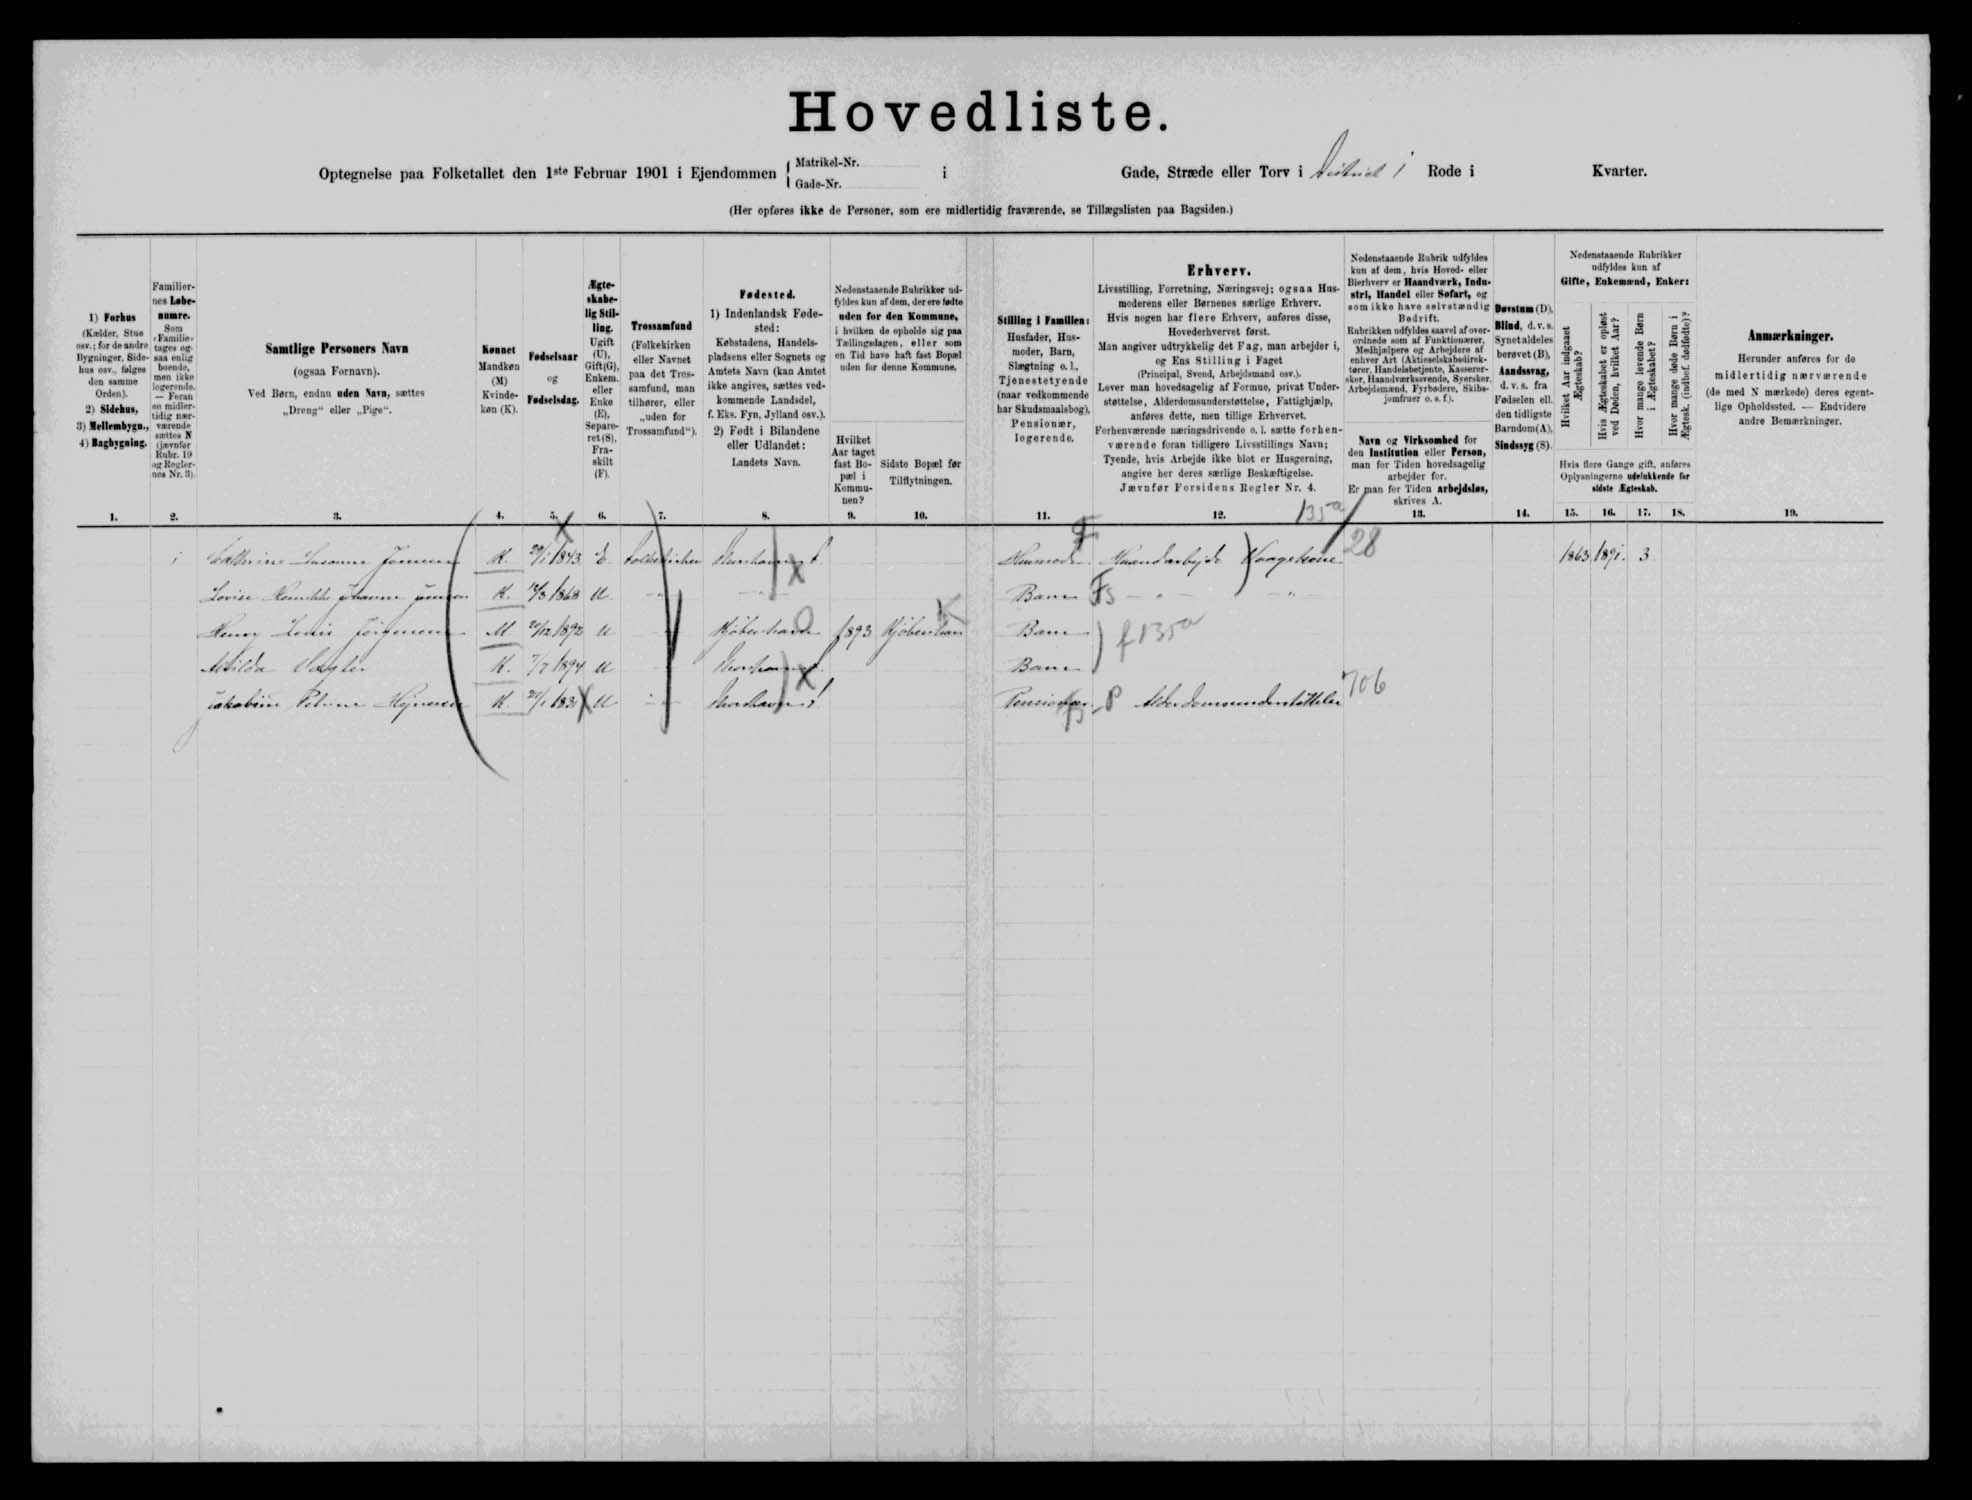 Hovedliste.
Optegnelse paa Folketallet den 1ste Februar 1901 i Ejendommen { Matrikel-Nr. Gade-Nr. i Gade, Stræde eller Torv i District 1 Rode i Kvarter.
(Her opføres ikke de Personer, som ere midlertidig fraværende, se Tillægslisten paa Bagsiden.)
1) Forhus
(Kælder, Stue
osv.; for de andre
Bygninger, Side-
hus osv., følges
den samme
Orden).
2) Sidehus,
3) Mellembygn.,
4) Bagbygning.
Familier-
nes Løbe-
numre.
Som
»Familie«
tages og-
saa enlig
boende,
men ikke
logerende.
— Foran
en midler-
tidig nær-
værende
sættes N
(jævnfør
Rubr. 19
og Regler-
nes Nr. 3).
Samtlige Personers Navn
(ogsaa Fornavn).
Ved Børn, endnu uden Navn, sættes
„Dreng“ eller „Pige“.
Kønnet
Mandkøn
(M)
Kvinde-
køn (K).
Fødselsaar
og
Fødselsdag.
Ægte-
skabe-
lig Stil-
ling.
Ugift
(U),
Gift(G),
Enkem.
eller
Enke
(E),
Separe-
ret(S),
Fra-
skilt
(F).
Trossamfund
(Folkekirken
eller Navnet
paa det Tros-
samfund, man
tilhører, eller
„uden for
Trossamfund“).
Fødested.
1) Indenlandsk Føde-
sted:
Købstadens, Handels-
pladsens eller Sognets og
Amtets Navn (kan Amtet
ikke angives, sættes ved-
kommende Landsdel,
f. Eks. Fyn, Jylland osv.).
2) Født i Bilandene
eller Udlandet:
Landets Navn.
Nedenstaaende Rubrikker ud-
fyldes kun af dem, der ere fødte
uden for den Kommune,
i hvilken de opholde sig paa
Tællingsdagen, eller som
en Tid have haft fast Bopæl
uden for denne Kommune.
Hvilket
Aar taget
fast Bo-
pæl i
Kommu-
nen?
Sidste Bopæl før
Tilflytningen.
Stilling i Familien:
Husfader, Hus-
moder, Barn,
Slægtning o. l.,
Tjenestetyende
(naar vedkommende
har Skudsmaalsbog),
Pensionær,
logerende.
Erhverv.
Livsstilling, Forretning, Næringsvej; ogsaa Hus-
moderens eller Børnenes særlige Erhverv.
Hvis nogen har flere Erhverv, anføres disse,
Hovederhvervet først.
Man angiver udtrykkelig det Fag, man arbejder i,
og Ens Stilling i Faget
(Principal, Svend, Arbejdsmand osv.).
Lever man hovedsagelig af Formue, privat Under-
støttelse, Alderdomsunderstøttelse, Fattighjælp,
anføres dette, men tillige Erhvervet.
Forhenværende næringsdrivende o. l. sætte forhen-
værende foran tidligere Livsstillings Navn;
Tyende, hvis Arbejde ikke blot er Husgerning,
angive her deres særlige Beskæftigelse.
Jævnfør Forsidens Regler Nr. 4.
Nedenstaaende Rubrik udfyldes
kun af dem, hvis Hoved- eller
Bierhverv er Haandværk, Indu-
stri, Handel eller Søfart, og
som ikke have selvstændig
Bedrift.
Rubrikken udfyldes saavel af over-
ordnede som af Funktionærer,
Medhjælpere og Arbejdere af
enhver Art (Aktieselskabsdirek-
tører, Handelsbetjente, Kasserer-
sker, Haandværkssvende, Syersker,
Arbejdsmænd, Fyrbødere, Skibs-
jomfruer o. s. f.).
Navn og Virksomhed for
den Institution eller Person,
man for Tiden hovedsagelig
arbejder for.
Er man for Tiden arbejdsløs,
skrives A.
Døvstum (D),
Blind, d. v. s.
Synet aldeles
berøvet (B),
Aandssvag,
d. v. s. fra
Fødselen ell.
den tidligste
Barndom(A),
Sindssyg (S).
Nedenstaaende Rubrikker
udfyldes kun af
Gifte, Enkemænd, Enker:
Hvilket Aar indgaaet Ægteskab?
Hvis Ægteskabet er opløst ved Døden, hvilket Aar?
Hvor mange levende Børn i Ægteskabet?
Hvor mange døde Børn i Ægtesk. (indbef. dødfødte)?
Hvis flere Gange gift, anføres
Oplysningerne udelukkende for
sidste Ægteskab.
Anmærkninger.
Herunder anføres for de
midlertidig nærværende
(de med N mærkede) deres egent-
lige Opholdssted. — Endvidere
andre Bemærkninger.
1. 2. 3. 4. 5. 6. 7. 8. 9. 10. 11. 12. 13. 14. 15. 16. 17. 18. 19.
135a
1 Cathrine Susanne Jensen K. 29/1 1843 E Folkekirken Thorshavn Husmoder Haandarbejde Vaagekone 28 1863 1891. 3
Lovise Johanne Jensen K. 1868 U -"- -"- Barn Fs -"- -"-
Henry Louis Jørgensen M 20/12 1892 U Kjøbenhavn 1893 Kjøbenhavn Barn f 135a
Alvilda K. 7/7 1894 U Thorshavn Barn
Jakobine Petrine K. 1831 X U -"- Thorshavn Pensionær P Alderdomsunderstøttelse 706